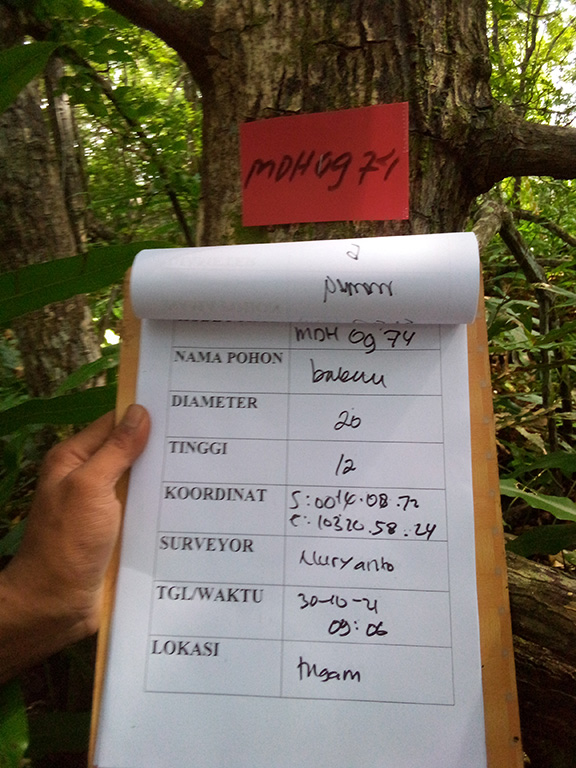 MDH 0974
MDH 0974
NAMA POHON bakau
DIAMETER 20
TINGGI 12
KOORDINAT S:0014.08.72
E:10320.58.24
SURVEYOR Nuryanto
TGL/WAKTU 30-10-21
09:06
LOKASI